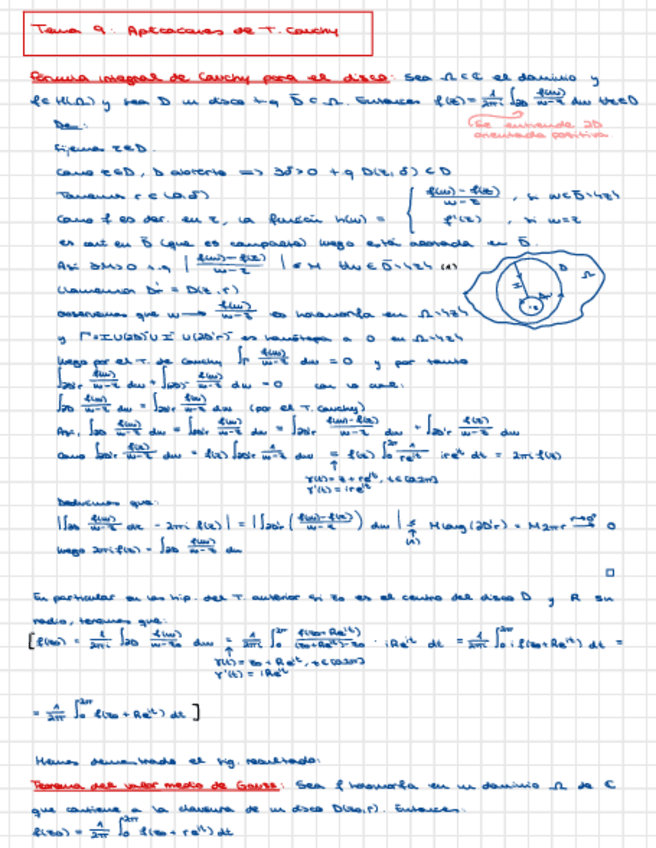 Tema 9: Aplicaciones de T. Cauchy
Fórmula integral de Cauchy para el disco: Sea Ω⊂ℂ el dominio y
f∈H(Ω) y sea D un disco t.q D̄⊂Ω. Entonces f(z) = 1/2πi ∫∂D f(w)/(w-z) dw ∀z∈D
Se entiende ∂D
orientada positiva.
Dem:
Fijemos z∈D.
Como z∈D, D abierto => ∃δ>0 t.q D(z,δ)⊂D
Tomamos r∈(0,δ)
Como f es der. en z, la función h(w) = { (f(w)-f(z))/(w-z) , si w∈D̄\{z}
f'(z) , si w=z
es cont en D̄ (que es compacta) luego está acotada en D̄.
Así ∃M>0 t.q | (f(w)-f(z))/(w-z) | ≤ M ∀w∈D̄\{z} (1)
Llamemos Dr = D(z,r)
observemos que w → f(w)/(w-z) es holomorfa en Ω\{z}
es homótopa a 0 en Ω\{z}
luego por el T. de Cauchy ∫Γ f(w)/(w-z) dw = 0 y por tanto
dw = 0 con lo cual:
∫∂D f(w)/(w-z) dw = ∫∂Dr f(w)/(w-z) dw (por el T. Cauchy)
Así, ∫∂D f(w)/(w-z) dw = ∫∂Dr f(w)/(w-z) dw = ∫∂Dr (f(w)-f(z))/(w-z) dw + ∫∂Dr f(z)/(w-z) dw
Como ∫∂Dr f(z)/(w-z) dw = f(z) ∫∂Dr 1/(w-z) dw = f(z) ∫₀^2π 1/(re^it) ire^it dt = 2πi f(z)
γ(t) = z + re^it, t∈[0,2π]
γ'(t) = ire^it
Deducimos que:
|∫∂D f(w)/(w-z) dz - 2πi f(z)| = |∫∂Dr ( (f(w)-f(z))/(w-z) ) dw| ≤ M long(∂Dr) = M2πr → 0
(1)
luego 2πi f(z) = ∫∂D f(w)/(w-z) dw
□
En particular en las hip. del T. anterior si z₀ es el centro del disco D y R su
radio, tenemos que:
[f(z₀) = 1/2πi ∫∂D f(w)/(w-z₀) dw = 1/2πi ∫₀^2π f(z₀+Re^it)/((z₀+Re^it)-z₀) · iRe^it dt = 1/2πi ∫₀^2π i f(z₀+Re^it) dt =
γ(t) = z₀ + Re^it, t∈[0,2π]
γ'(t) = iRe^it
= 1/2π ∫₀^2π f(z₀+Re^it) dt ]
Hemos demostrado el sig. resultado:
Teorema del valor medio de Gauss: Sea f holomorfa en un dominio Ω de ℂ
que contiene a la clausura de un disco D(z₀,r). Entonces:
f(z₀) = 1/2π ∫₀^2π f(z₀ + re^it) dt